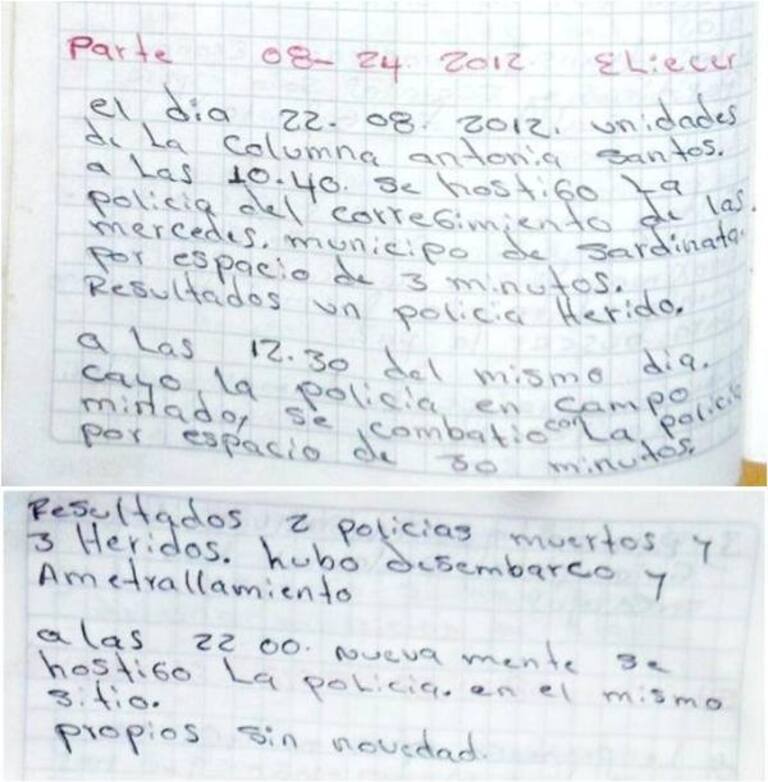 Parte 08-24. 2012 Eliecer
el dia 22.08.2012. unidades
de La columna antonia santos.
a Las 10.40. se hostigo La
policia del corregimiento de las
mercedes. municipo de sardinata.
por espacio de 3 minutos.
Resultados un policia Herido.
a Las 12.30 del mismo dia.
cayo La policia en campo
minado, se combatio con La policia
por espacio de 30 minutos.
Resultados 2 policias muertos y
3 Heridos. hubo desembarco y
Ametrallamiento
a las 22 00. nueva mente se
hostigo La policia. en el mismo
sitio.
propios sin novedad.